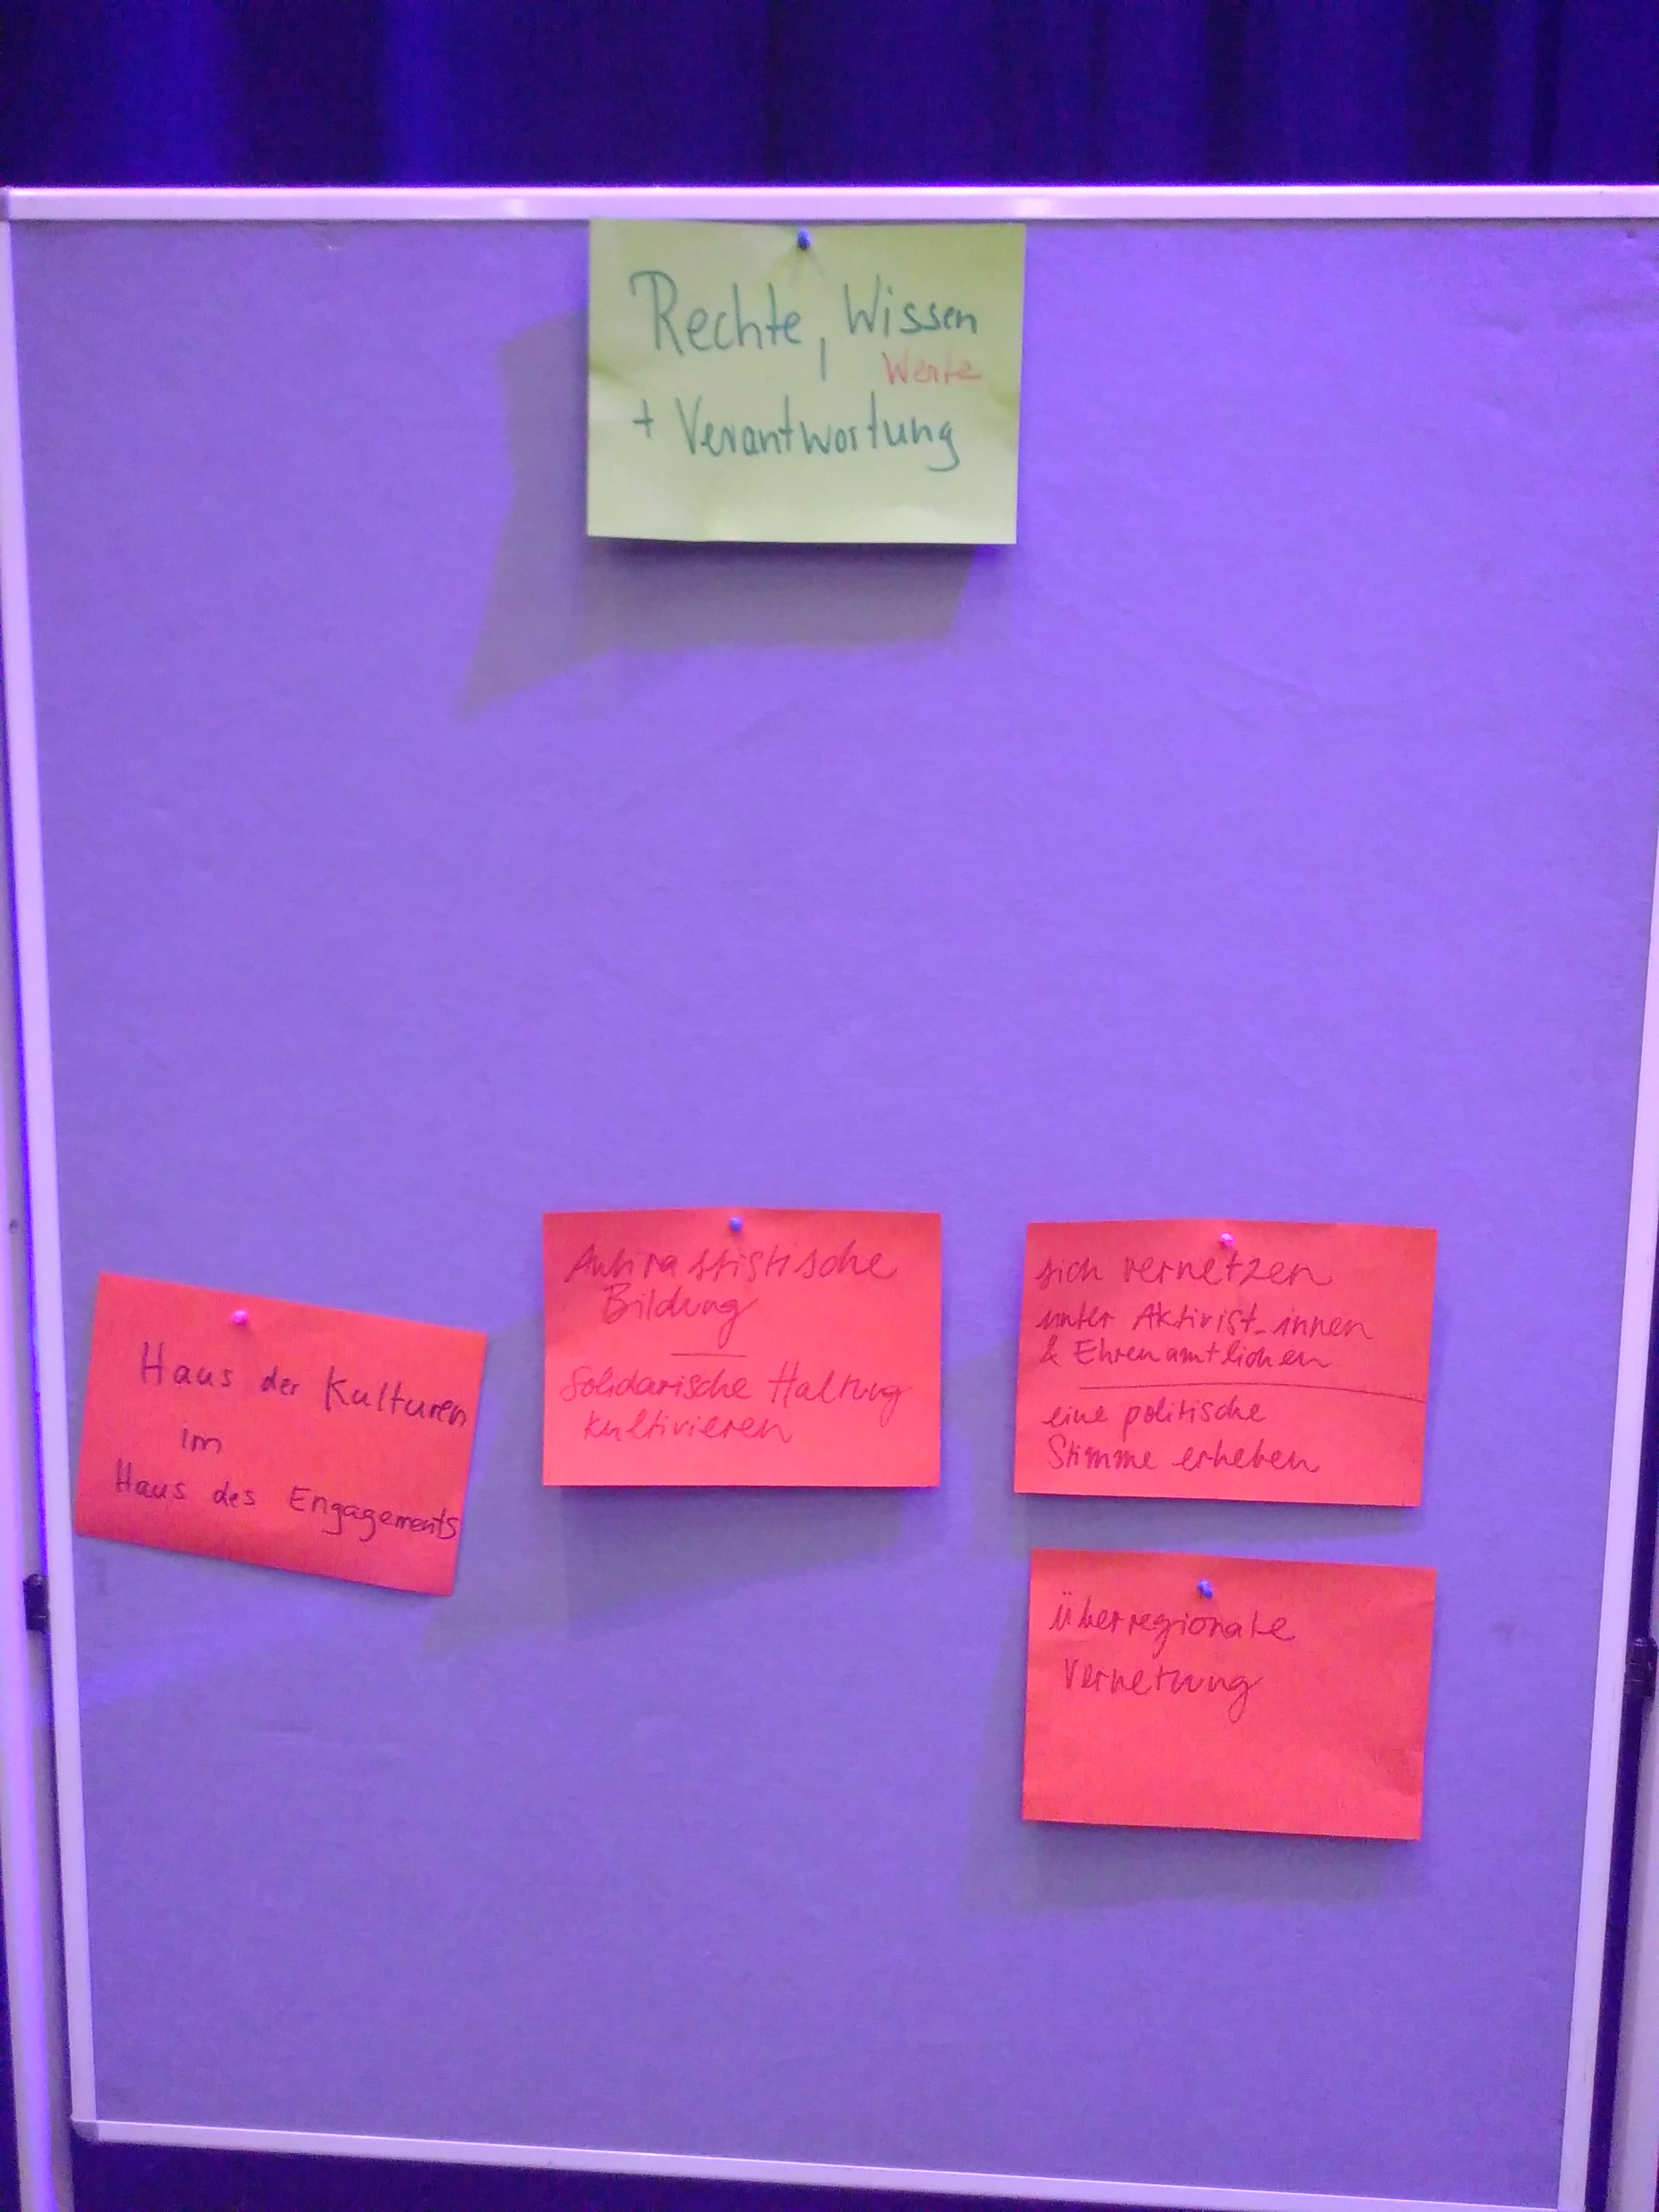 Rechte, Wissen
Werte
+ Verantwortung
Haus der Kulturen
im
Haus des Engagements
Antirassistische
Bildung
Solidarische Haltung
kultivieren
sich vernetzen
unter Aktivist_innen
& Ehrenamtlichen
eine politische
Stimme erheben
überregionale
Vernetzung